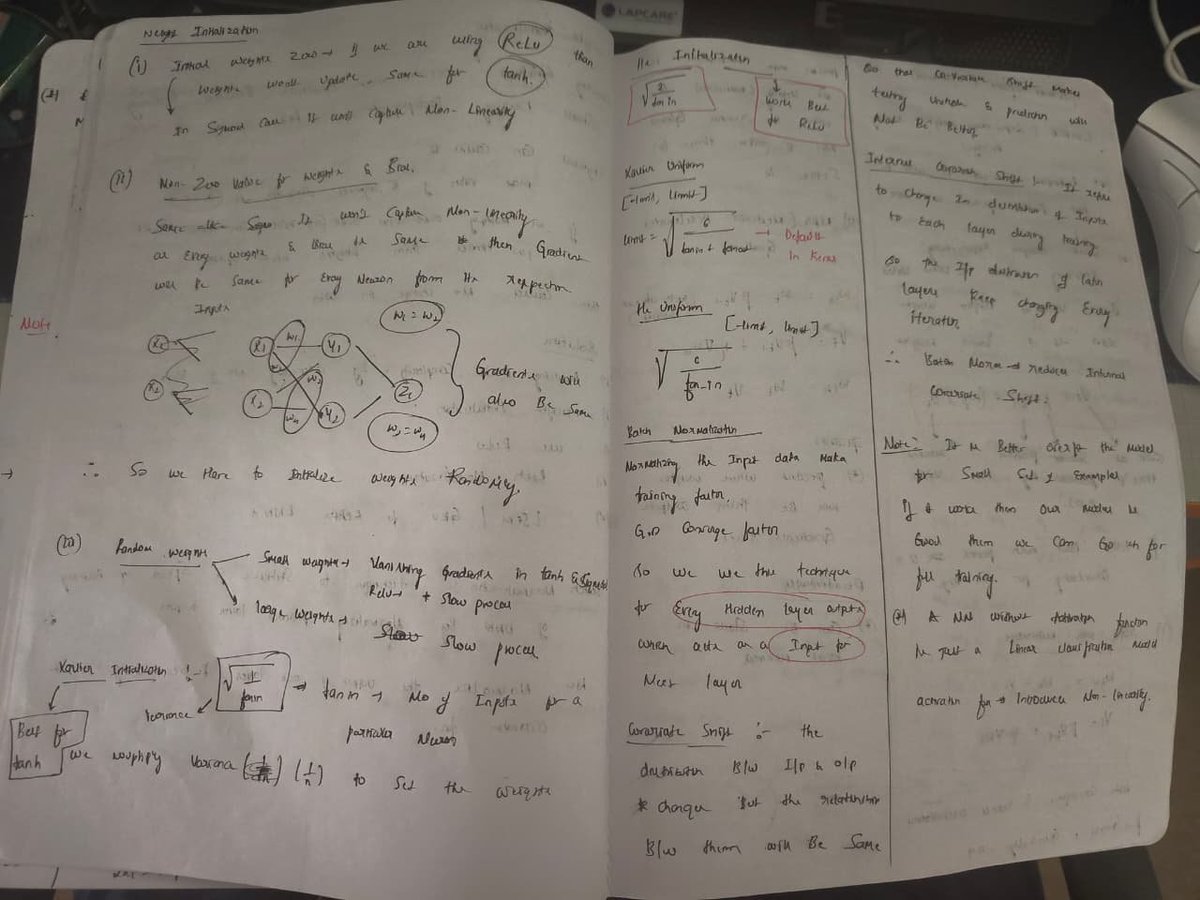 Weight Initialization
(i) Initial weights zero → If we are using ReLu then
weights won't update. Same for tanh.
In Sigmoid case it won't capture Non-Linearity
(ii) Non-Zero Value for weights & Bias.
Same like Sigm It won't Capture Non-linearity
as Every weights & Bias is Same then Gradient
will be Same for Every Neuron from its respective
Inputs
Note
X1 W1 Y1
X2 Y2
Z1
W1 = W2
Gradients will
also Be Same
∴ So we Have to Initialize weights Randomly.
(iii) Random weights
Small weights → Vanishing Gradients in tanh & Sigmoid
Relu → Slow process
large weights →
Slow process
Xavier Initialization :-
√(1/fanin) → fanin → No of Inputs for a
particular Neuron
Variance
Best for
tanh
we multiply Variance (1/n) to Set the weights
LAPCARE
He Initialization
√(2/fanin)
Works Best
for ReLu
Xavier Uniform
[-limit, limit]
limit = √(6/fanin + fanout) → Default
in Keras
He Uniform
[-limit, limit]
√(6/fan-in)
Batch Normalization
Normalizing the Input data Make
training faster.
G.D Converge faster
So we use this technique
for Every Hidden layer outputs
which acts as a Input for
Next layer
Covariate Shift :- the
distribution B/w I/p & o/p
changes But the relationship
B/w them will Be Same
So that Covariate Shift Makes
testing & prediction will
Not Be Better
Internal Covariate Shift It refers
to change in distribution of Inputs
to Each layer during training
So the I/p distribution of later
layers Keep changing Every
Iteration
∴ Batch Norm → reduces Internal
Covariate Shift.
Note:- It is Better overfit the Model
for Small Set of Examples
If it works then our Model is
Good then we can Go on for
full training.
A NN without Activation function
is just a Linear Classification Model
activation fn → Introduces Non-linearity.